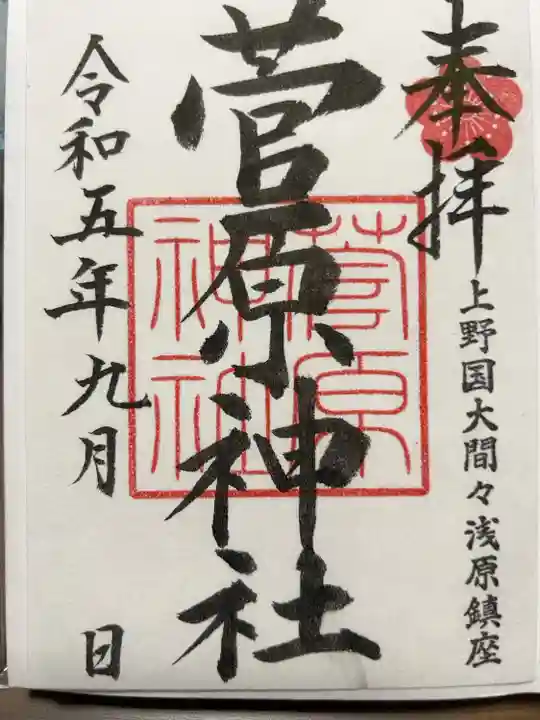 奉拝
上野国大間々浅原鎮座
菅原神社
菅原
神社
令和五年九月 日